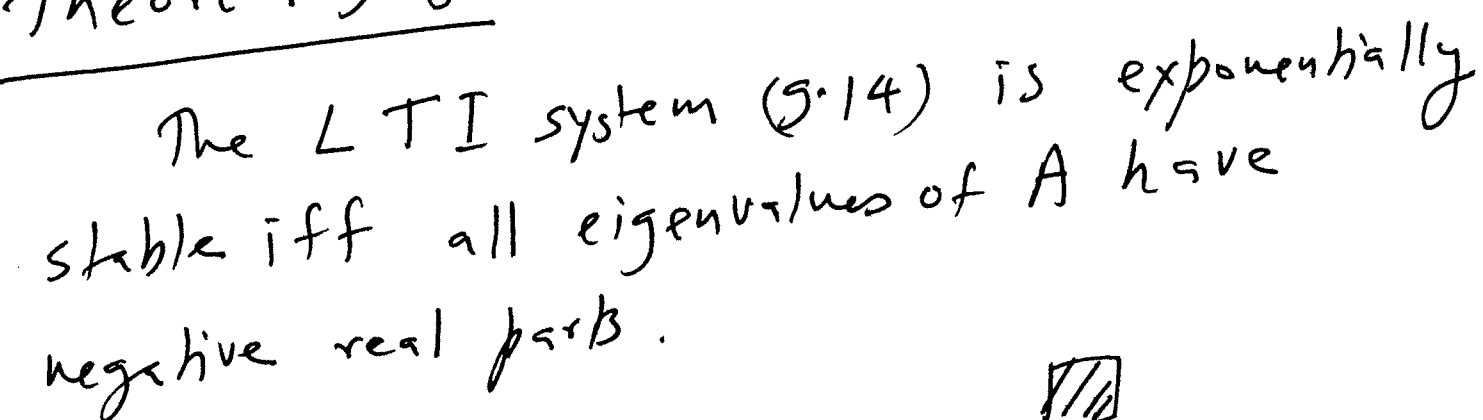 The LTI system (5.14) is exponentially
stable iff all eigenvalues of A have
negative real parts.